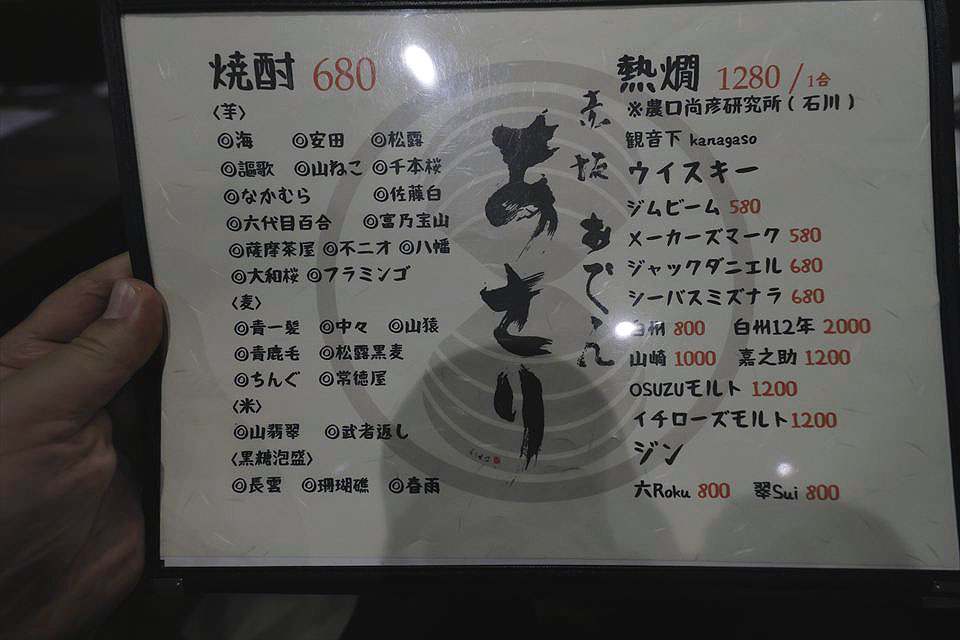 焼酎 680
〈芋〉
◎海 ◎安田 ◎松露
◎謳歌 ◎山ねこ ◎千本桜
◎なかむら ◎佐藤白
◎六代目百合 ◎富乃宝山
◎薩摩茶屋 ◎不二才 ◎八幡
◎大和桜 ◎フラミンゴ
〈麦〉
◎青一髪 ◎中々 ◎山猿
◎青鹿毛 ◎松露黒麦
◎ちんぐ ◎常徳屋
〈米〉
◎山翡翠 ◎武者返し
〈黒糖泡盛〉
◎長雲 ◎珊瑚礁 ◎春雨
赤坂 おでん
あさり
熱燗 1280/1合
※農口尚彦研究所(石川)
観音下 kanagaso
ウイスキー
ジムビーム 580
メーカーズマーク 580
ジャックダニエル 680
シーバスミズナラ 680
白州 800 白州12年 2000
山崎 1000 嘉之助 1200
OSUZUモルト 1200
イチローズモルト 1200
ジン
六Roku 800 翠Sui 800